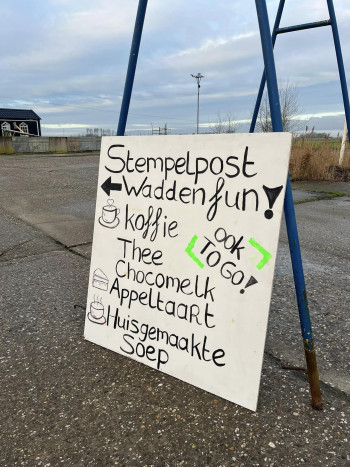 Stempelpost
Waddenfun!
koffie
Thee
Chocomelk
Appeltaart
Huisgemaakte
Soep
ook
TO GO!